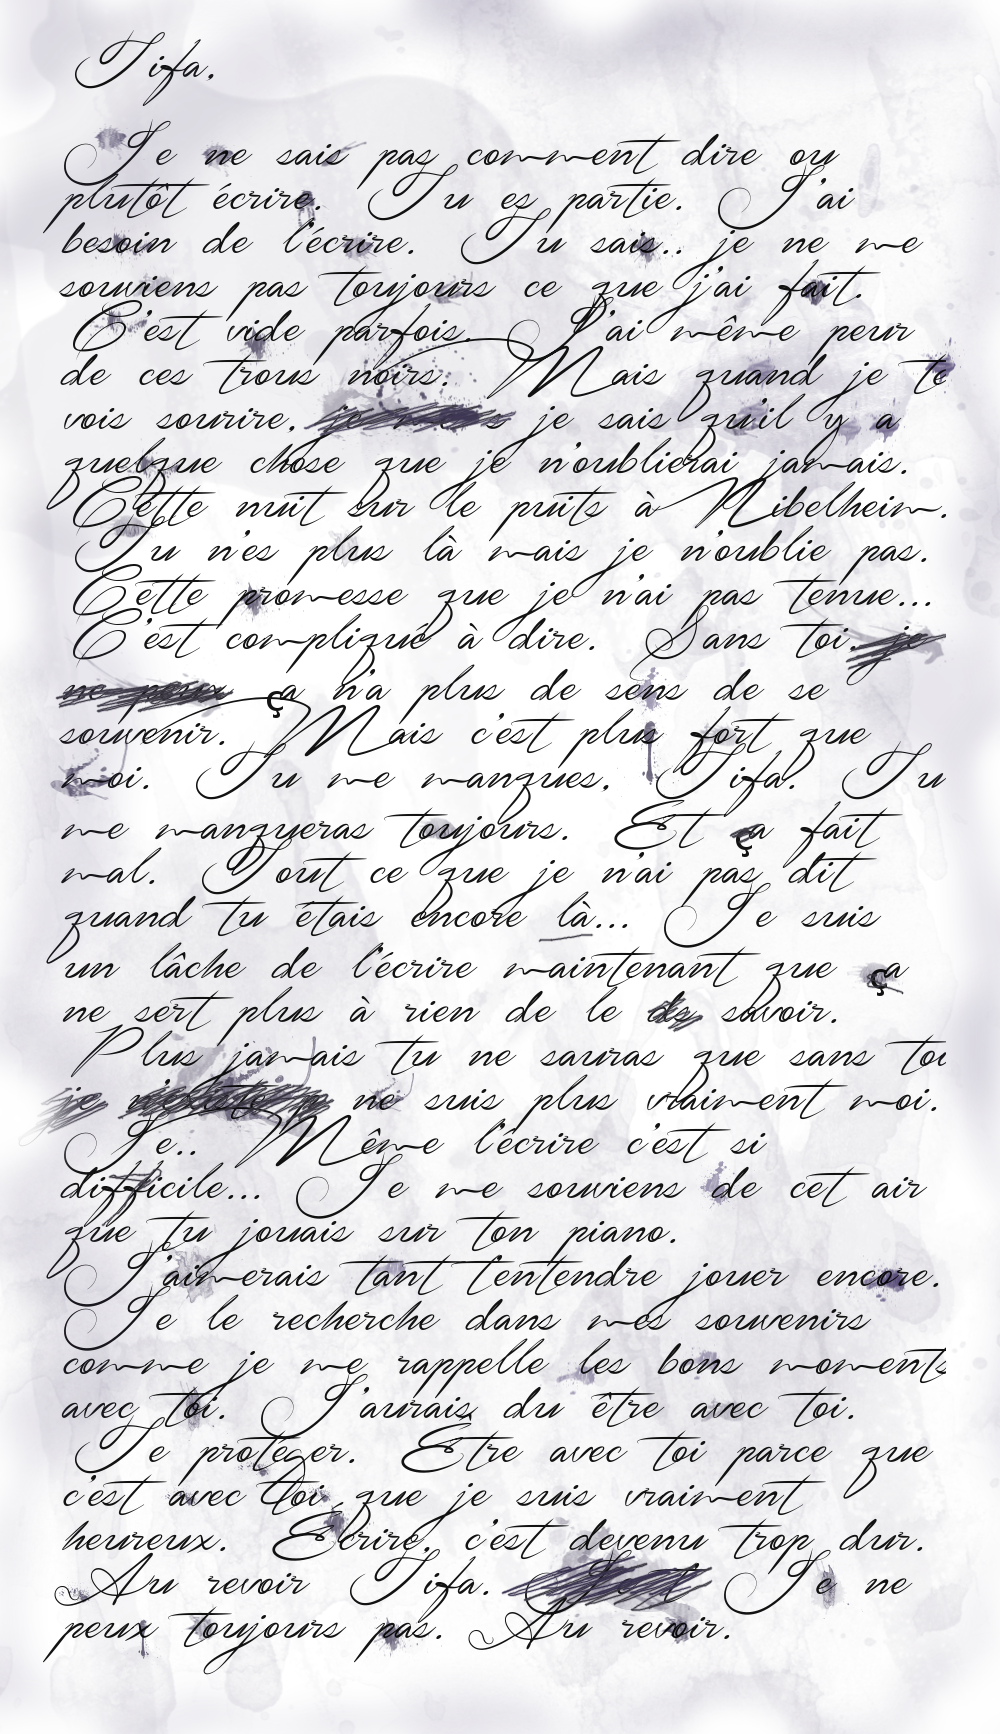 Tifa.
Je ne sais pas comment dire ou
plutôt écrire. Tu es partie. J'ai
besoin de l'écrire. Tu sais.. je ne me
souviens pas toujours ce que j'ai fait.
C'est vide parfois. J'ai même peur
de ces trous noirs. Mais quand je te
vois sourire, je sais qu'il y a
quelque chose que je n'oublierai jamais.
Cette nuit sur le puits à Nibelheim.
Tu n'es plus là mais je n'oublie pas.
Cette promesse que je n'ai pas tenue...
C'est compliqué à dire. Sans toi, je
ne peux ça n'a plus de sens de se
souvenir. Mais c'est plus fort que
moi. Tu me manques. Tifa. Tu
me manqueras toujours. Et ça fait
mal. Tout ce que je n'ai pas dit
quand tu étais encore là... Je suis
un lâche de l'écrire maintenant que ça
ne sert plus à rien de le savoir.
Plus jamais tu ne sauras que sans toi
je ne suis plus vraiment moi.
Je.. Même l'écrire c'est si
difficile... Je me souviens de cet air
que tu jouais sur ton piano.
J'aimerais tant t'entendre jouer encore.
Je le recherche dans mes souvenirs
comme je me rappelle les bons moments
avec toi. J'aurais du être avec toi.
Te protéger. Etre avec toi parce que
c'est avec toi que je suis vraiment
heureux. Ecrire, c'est devenu trop dur.
Au revoir Tifa. Je ne
peux toujours pas. Au revoir.